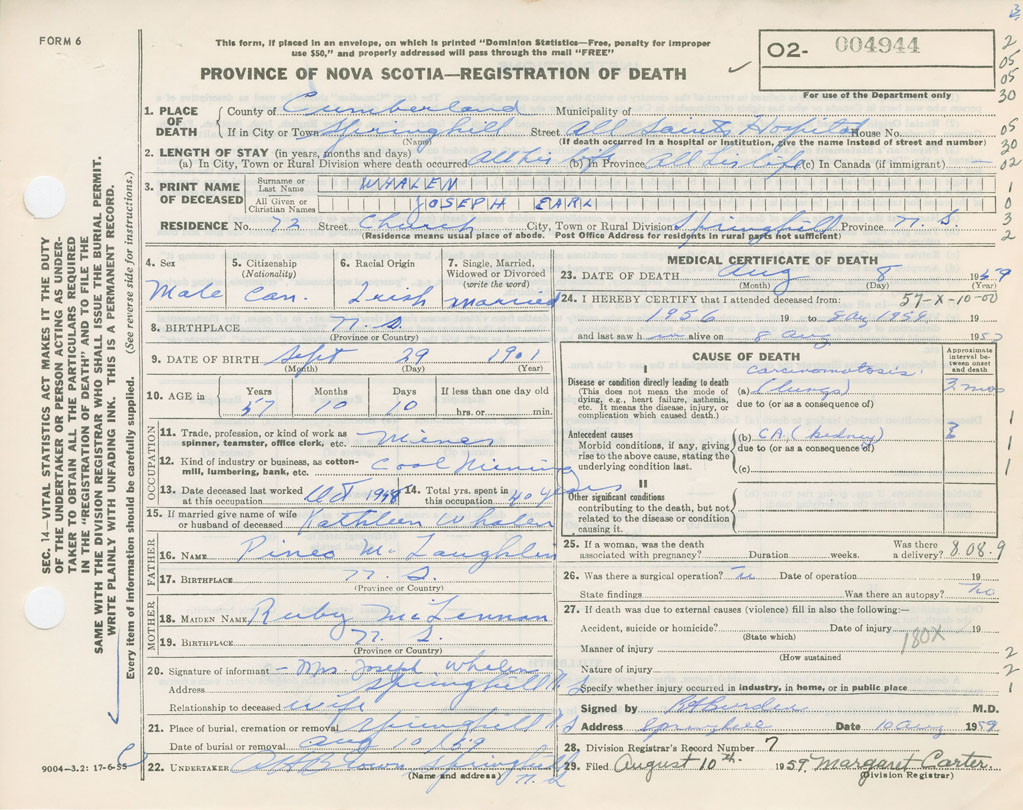 FORM 6
This form, if placed in an envelope, on which is printed "Dominion Statistics—Free, penalty for improper
use $50," and properly addressed will pass through the mail "FREE"
PROVINCE OF NOVA SCOTIA—REGISTRATION OF DEATH
O2- 004944
For use of the Department only
2
05
05
30
05
30
02
1
0
3
2
1. PLACE OF DEATH
County of Cumberland Municipality of
If in City or Town Springhill Street All Saints Hospital House No.
(Name) (If death occurred in a hospital or institution, give the name instead of street and number)
2. LENGTH OF STAY (in years, months and days)
(a) In City, Town or Rural Division where death occurred all his life (b) In Province All his life (c) In Canada (if immigrant) —
3. PRINT NAME OF DECEASED
Surname or Last Name WHALEN
All Given or Christian Names JOSEPH EARL
RESIDENCE No. 72 Street Church City, Town or Rural Division Springhill Province N. S.
(Residence means usual place of abode. Post Office Address for residents in rural parts not sufficient)
4. Sex Male
5. Citizenship (Nationality) Can.
6. Racial Origin Irish
7. Single, Married, Widowed or Divorced (write the word) Married
8. BIRTHPLACE N. S.
(Province or Country)
9. DATE OF BIRTH Sept 29 1901
(Month) (Day) (Year)
10. AGE in Years 57 Months 10 Days 10 If less than one day old hrs. or min.
OCCUPATION
11. Trade, profession, or kind of work as spinner, teamster, office clerk, etc. Miner
12. Kind of industry or business, as cotton-mill, lumbering, bank, etc. Coal Mining
13. Date deceased last worked at this occupation Oct 1958
14. Total yrs. spent in this occupation 40 years
15. If married give name of wife or husband of deceased Kathleen Whalen
FATHER
16. NAME Pineo McLaughlin
17. BIRTHPLACE N. S.
(Province or Country)
MOTHER
18. MAIDEN NAME Ruby McLennan
19. BIRTHPLACE N. S.
(Province or Country)
20. Signature of informant — Mrs. Joseph Whalen
Address Springhill N S
Relationship to deceased wife
21. Place of burial, cremation or removal Springhill N S
Date of burial or removal Aug 10/59
22. UNDERTAKER Brown Springhill
(Name and address) N. S.
MEDICAL CERTIFICATE OF DEATH
23. DATE OF DEATH Aug 8 1959
(Month) (Day) (Year)
24. I HEREBY CERTIFY that I attended deceased from: 57-X-10-00
1956 19 to 8 Aug 1959 19
and last saw h im alive on 8 Aug 195
CAUSE OF DEATH
Approximate interval between onset and death
I
Disease or condition directly leading to death
(This does not mean the mode of dying, e.g., heart failure, asthenia, etc. It means the disease, injury, or complication which caused death.)
carcinomatosis.
(a) (lungs) 3 mos
due to (or as a consequence of)
Antecedent causes
Morbid conditions, if any, giving rise to the above cause, stating the underlying condition last.
(b) CA. (kidney)
due to (or as a consequence of)
(c)
1
1
1
II
Other significant conditions
contributing to the death, but not related to the disease or condition causing it.
25. If a woman, was the death associated with pregnancy? Duration weeks. Was there a delivery? 8.08.9
26. Was there a surgical operation? no Date of operation 19
State findings Was there an autopsy? no
27. If death was due to external causes (violence) fill in also the following:—
Accident, suicide or homicide? Date of injury 19
(State which) 180X
Manner of injury 2
(How sustained
Nature of injury 2
Specify whether injury occurred in industry, in home, or in public place 1
Signed by M.D.
Address Springhill Date 10 Aug 1959
28. Division Registrar's Record Number 7
29. Filed August 10th. 1959. Margaret Carter.
(Division Registrar)
SEC. 14—VITAL STATISTICS ACT MAKES IT THE DUTY
OF THE UNDERTAKER OR PERSON ACTING AS UNDER-
TAKER TO OBTAIN ALL THE PARTICULARS REQUIRED
IN THE "REGISTRATION OF DEATH" AND TO FILE THE
SAME WITH THE DIVISION REGISTRAR WHO SHALL ISSUE THE BURIAL PERMIT.
WRITE PLAINLY WITH UNFADING INK. THIS IS A PERMANENT RECORD.
Every item of information should be carefully supplied. (See reverse side for instructions.)
9004-3.2: 17-6-55